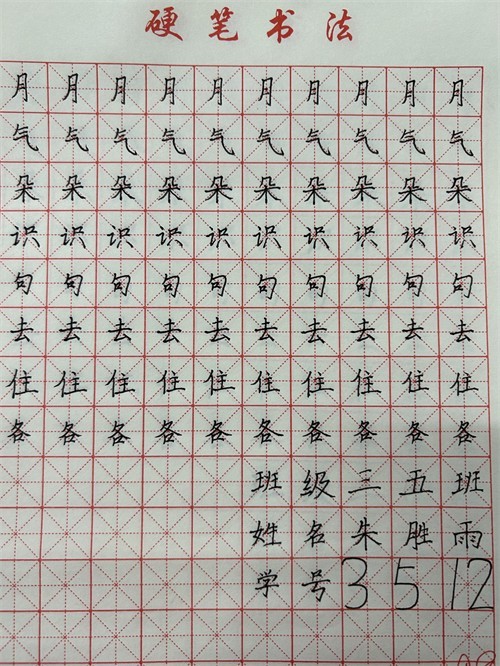 硬笔书法
月月月月月月月月月月
气气气气气气气气气气
朵朵朵朵朵朵朵朵朵朵
识识识识识识识识识识
句句句句句句句句句句
去去去去去去去去去去
住住住住住住住住住住
各各各各各各各各各各
班级三五班
姓名朱胜雨
学号3512